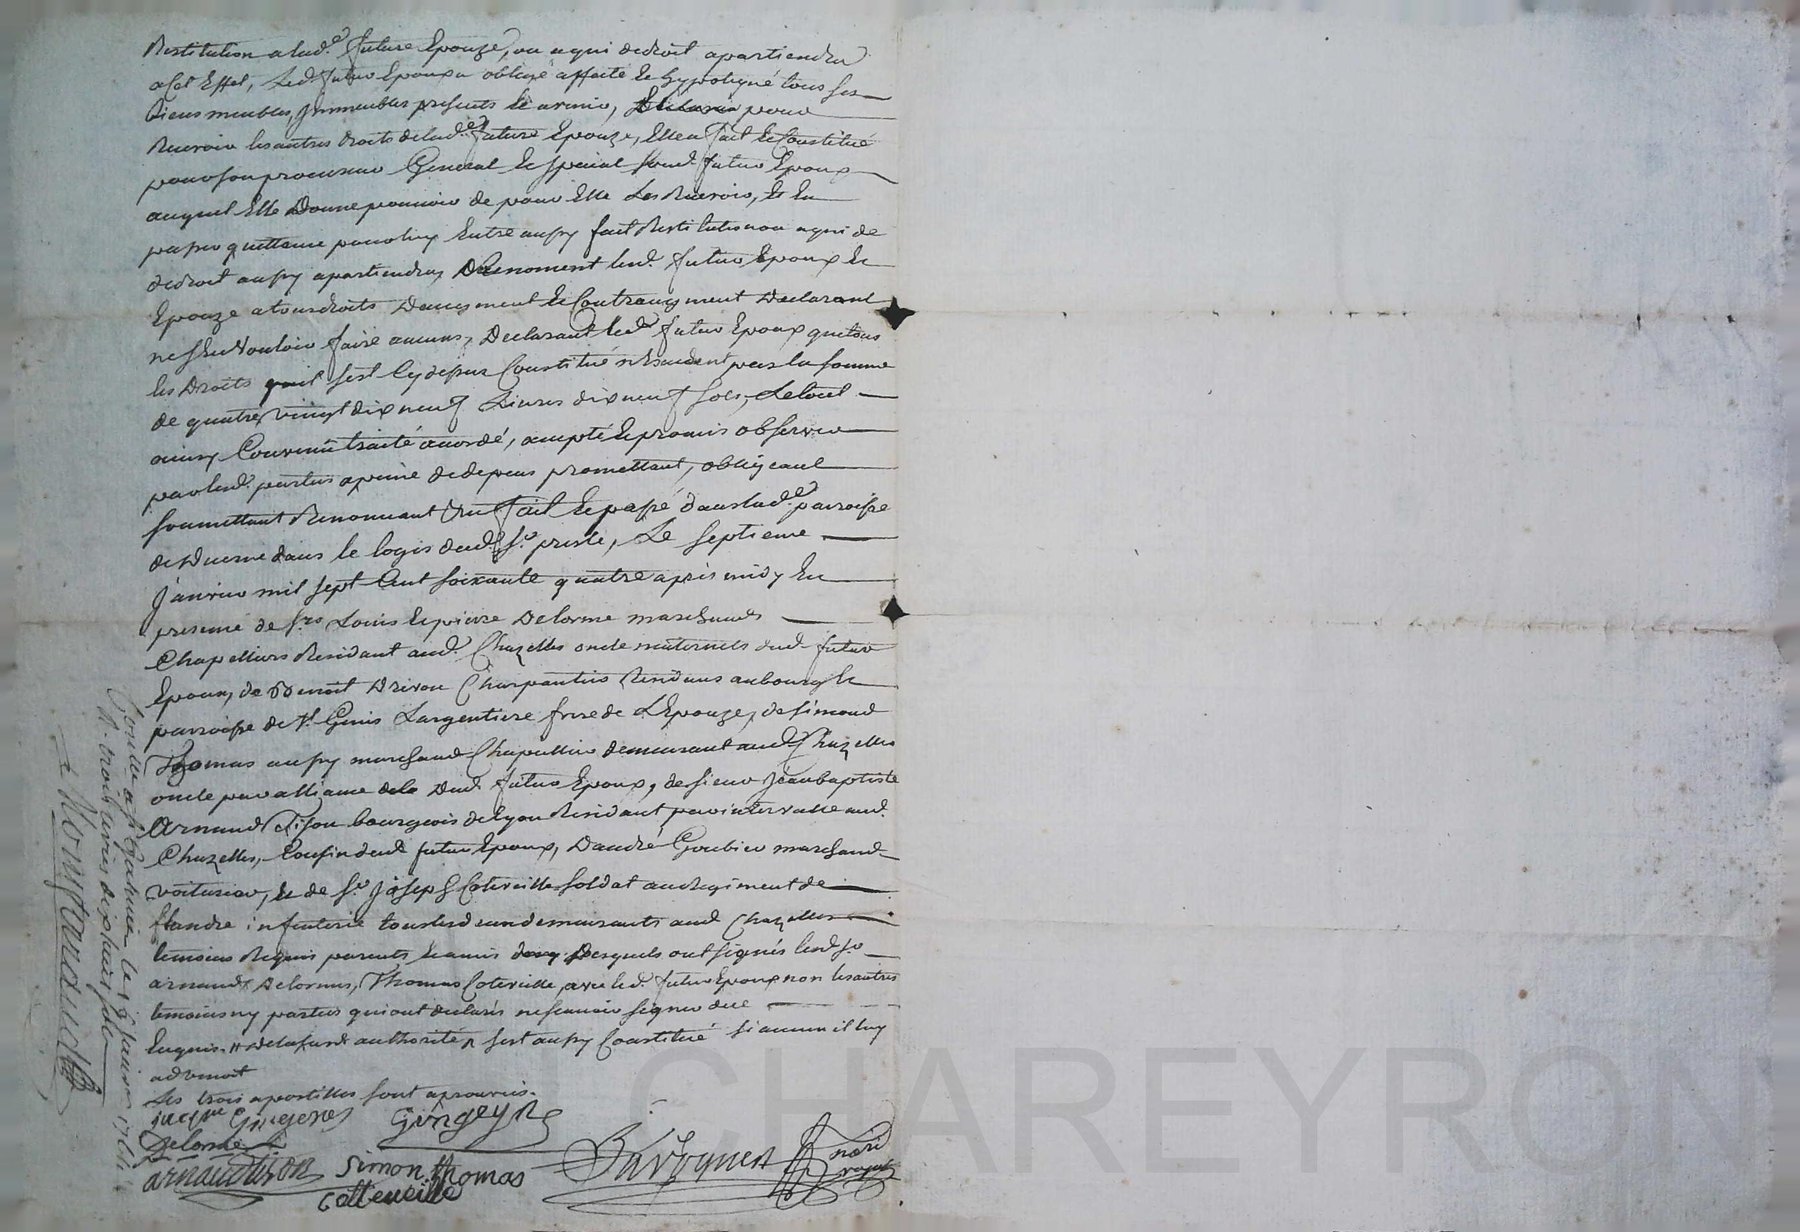 Restitution a lad.e future Epouze, ou a qui dedroit apartiendra
a Cet Effet, Led. futur Epoux a obligé affecté Et hypotequé tous ses
biens meubles, Jmmeubles presents Et avenir, pour
Recevoir les autres droits delad.e future Epouze, Elle a fait Et Constitué
pour son procureur General Et special led. futur Epoux
auquel Elle Donne pouvoir de pour Elle Les Recevoir, Et En
passer quittance pour luy Entre aussy fait Restitution a qui de
dedroit aussy apartiendra, Renoncent lesd. futur Epoux Et
Epouze a tous droits Daugment Et Contraugment Declarant
ne s'En Vouloir faire aucuns, Declarant led. futur Epoux que tous
les Droits quil sest Cy dessus Constitué n'Excedent pas la somme
de quatre vingt dix neuf Livres dix neuf sols, Le tout
ainsy Convenû traité acordé, accepté Et promis observer
par lesd. parties a peine de depens promettant, obligeant
soumettant Renonceant fait Et passé dans lad.e parroisse
de Duerne dans le logis dud. Sr. preste, Le septieme
Janvier mil sept Cent soixante quatre après midy En
presence de Srs Louis Et pierre Delorme marchands
Chapelliers Residant aud. Chazelles oncle maternels dud. futur
Epoux, de Benoit Drivon Charpantier Residans au bourg Et
parroisse de St. Genis Largentiere frere de L'Epouze, de simond
Thomas aussy marchand Chapellier demeurant aud. Chazelles
oncle par alliance Dud. futur Epoux, de sieur Jean baptiste
Arnaud Tison bourgeois de Lyon Residant par intervalle aud.
Chazelles, Cousin dud. futur Epoux, D'andré Goubier marchand
voiturier, Et de Sr. Joseph Coteveille soldat au Regiment de
flandre infanterie tous les deux demeurants aud. Chazelles
temoins Requis parents Et amis Desquels ont signés lesd. Srs
arnaud, Delormes, Thomas Coteveille avec led. futur Epoux non les autres
temoins ny parties qui ont declarés ne scavoir signer de ce
Enquis. # delasusd. authorité sest aussy Constitué si aucun il luy
advenoit
Les trois apostilles sont aprouvées.
jacque Gingenes Gingeyre
Delorme
arnaud tison Simon thomas
Cotteveille
Controllé a le Janvier 1764
R. trois livres dix huit sols
CHAREYRON